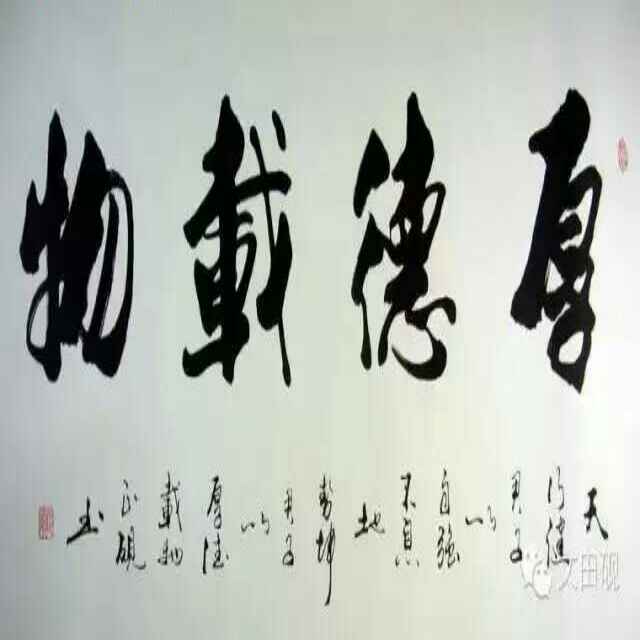 厚德載物
天
行健
君子
以
自強
不息
地
勢坤
君子
以
厚德
載物
正硯
书
大田砚